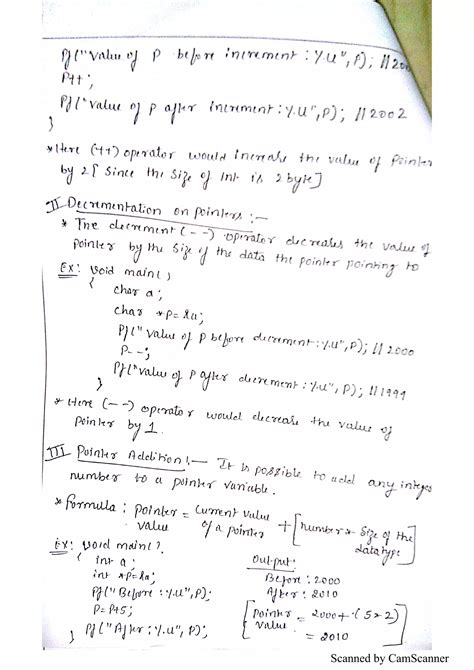 Pf("Value of P before increment : %u", P); // 200
P++;
Pf("value of P after increment : %u", P); // 2002
}
* Here (++) operator would increase the value of Pointer
by 2 [ Since the Size of int is 2 byte]
II Decrementation on pointers :-
* The decrement (--) operator decreases the value of
pointer by the Size of the data the pointer pointing to
Ex: void main( )
{
char a;
char *P=&a;
Pf(" value of P before decrement : %u", P); // 2000
P--;
Pf("value of P after decrement : %u", P); // 1999
}
* Here (--) operator would decrease the value of
Pointer by 1.
III Pointer Addition :- It is possible to add any integer
number to a pointer variable.
* formula : pointer value = Current value of a pointer + [number * Size of the datatype]
Ex: void main( )
{ int a;
int *P=&a;
Pf("Before : %u", P);
P=P+5;
Pf("After : %u", P);
}
Output:
Before : 2000
After : 2010
[Pointer value = 2000 + (5×2)
= 2010]
Scanned by CamScanner